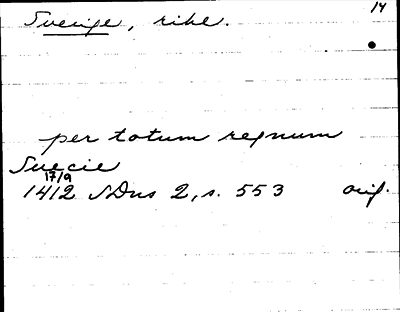 14
Sverige, rike.
per totum regnum
Suecie
17/9
1412 SDns 2, s. 553 orig.